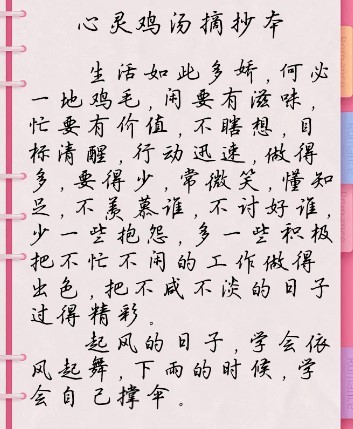 心灵鸡汤摘抄本
生活如此多娇，何必
一地鸡毛，闲要有滋味，
忙要有价值，不瞎想，目
标清醒，行动迅速，做得
多，要得少，常微笑，懂知
足，不羡慕谁，不讨好谁，
少一些抱怨，多一些积极
把不忙不闲的工作做得
出色，把不咸不淡的日子
过得精彩。
起风的日子，学会依
风起舞，下雨的时候，学
会自己撑伞。